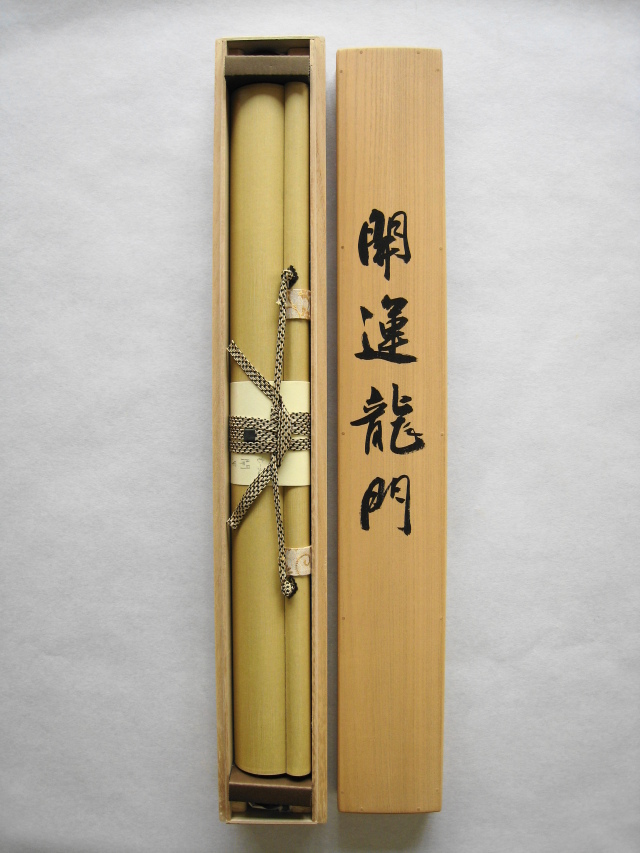 開運龍門